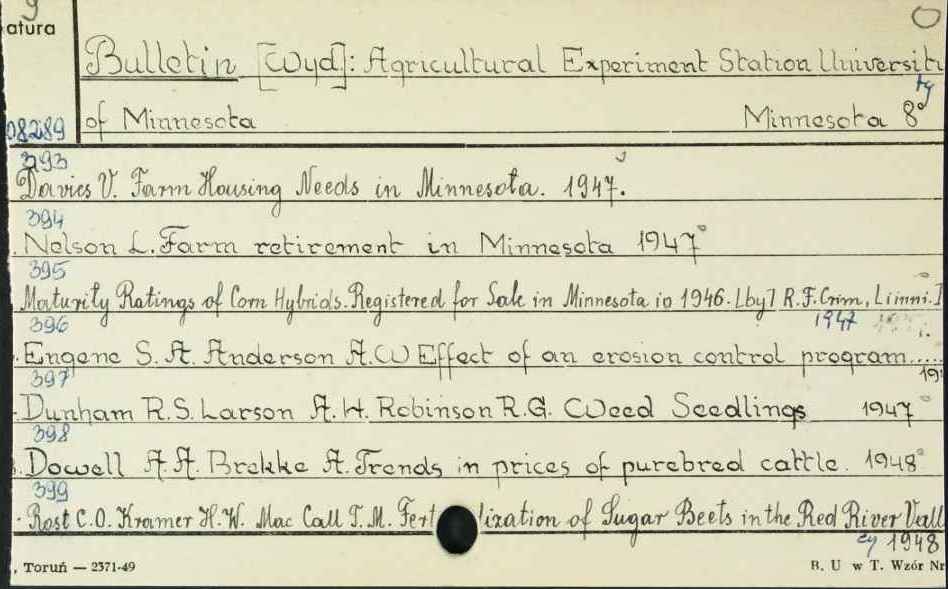 9
atura
Bulletin [Wyd]: Agricultural Experiment Station Universit
ty
08289 of Minnesota Minnesota 8°
393
Davies V. Farm Housing Needs in Minnesota. 1947.
394
Nelson L. Farm retirement in Minnesota 1947
395
Maturity Ratings of Corn Hybrids. Registered for Sale in Minnesota in 1946. [by] R.F. Crim, I i inni.]
396 1947
Engene S. A. Anderson A.W Effect of an erosion control program.....
397 19
Dunham R.S. Larson A.H. Robinson R.G. Weed Seedlings 1947
398
Dowell A.A. Brekke A. Trends in prices of purebred cattle. 1948
399
Rost C.O. Kramer H.W. Mac Call T.M. Fertilization of Sugar Beets in the Red River Vall
ey 1948
, Toruń — 2371-49 B. U w T. Wzór Nr